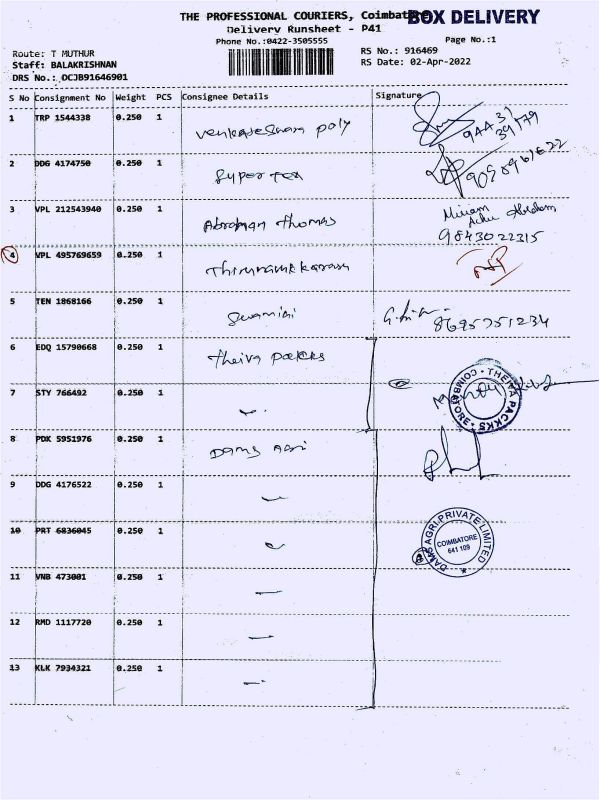 THE PROFESSIONAL COURIERS, Coimbatore
BOX DELIVERY
Delivery Runsheet - P41
Phone No.:0422-3505555
Page No.:1
Route: T MUTHUR
RS No.: 916469
Staff: BALAKRISHNAN
RS Date: 02-Apr-2022
DRS No.: DCJB91646901
S No Consignment No Weight PCS Consignee Details Signature
1 TRP 1544338 0.250 1 Venkateshwara poly
2 DDG 4174750 0.250 1 Super tex
3 VPL 212543940 0.250 1 Abraham Thomas Miriam
9843022315
4 VPL 495769659 0.250 1
5 TEN 1868166 0.250 1 Swamini 8695751234
6 EDQ 15790668 0.250 1 Theiva packks
7 STY 766492 0.250 1
THEIVA PACKKS COIMBATORE
8 PDX 5951976 0.250 1 Dams Agri
9 DDG 4176522 0.250 1
10 PRT 6836045 0.250 1
DAMS AGRI PRIVATE LIMITED
COIMBATORE
641 109
11 VNB 473001 0.250 1
12 RMD 1117720 0.250 1
13 KLK 7934321 0.250 1